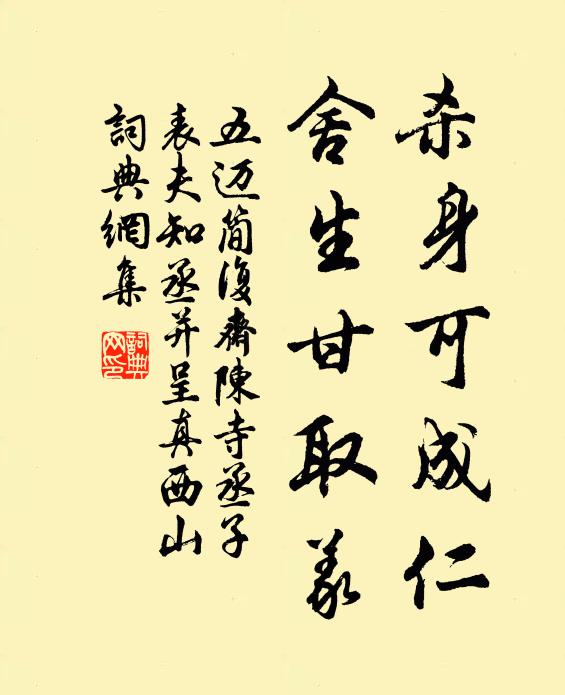 杀身可成仁
舍生甘取义
五迈简復斋陳寺丞子
表夫知丞并呈真西山
詞典網集
詞典網印